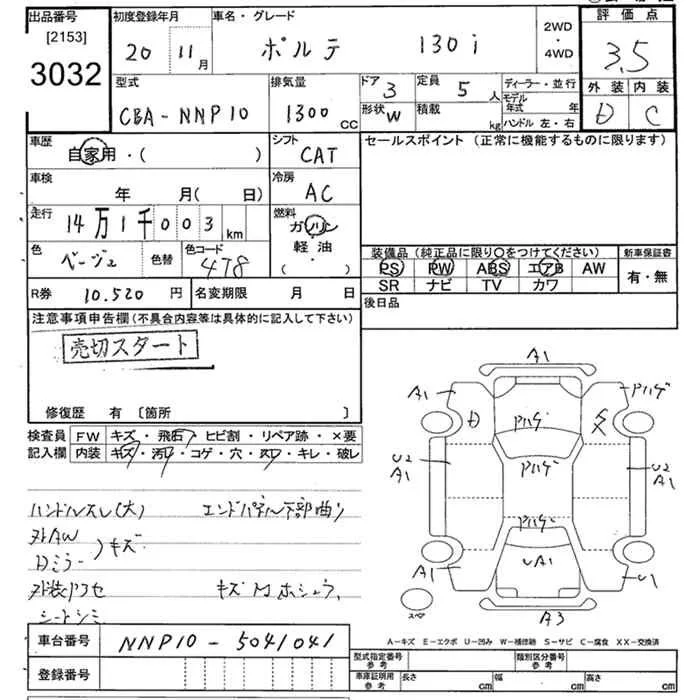 出品番号
[2153]
3032
初度登録年月
20 11月
車名・グレード
ポルテ 130i
2WD・4WD
評価点
3.5
型式
CBA-NNP10
排気量
1300 CC
ドア 3
形状 W
定員 5 人
積載 kg
ディーラー・並行
モデル年式 年
ハンドル 左・右
外装 内装
D C
車歴
自家用・( )
シフト
CAT
セールスポイント (正常に機能するものに限ります)
車検
年 月(日)
冷房
AC
走行
14万1千003 km
燃料
ガソリン・軽油・( )
色
ベージュ
色替
色コード
4T8
装備品 (純正品に限り○をつけてください)
PS PW ABS エアB AW
SR ナビ TV カワ
新車保証書
有・無
R券 10.520 円
名変期限 月 日
後日品
注意事項申告欄(不具合内容等は具体的に記入して下さい)
売切スタート
修復歴 有 [箇所 ]
検査員記入欄
FW キズ・飛石・ヒビ割・リペア跡・×要
内装 キズ・汚れ・コゲ・穴・スレ・キレ・破レ
ハンドルスレ(大) エンドパネル下部曲り
外AW
Dミラー 〉キズ
外装アクセ
シートシミ
A1
A1 Pハゲ
D Pハゲ
U2 A1 Pハゲ U2 A1
Pハゲ
A1 UA1 U1
スペア
A3
A-キズ E-エクボ U-凹み W-補修跡 S-サビ C-腐食 XX-交換済
車台番号 NNP10-5041041
登録番号
型式指定番号 参考
類別区分番号 参考
車庫証明用 参考
長さ cm 幅 cm 高さ cm